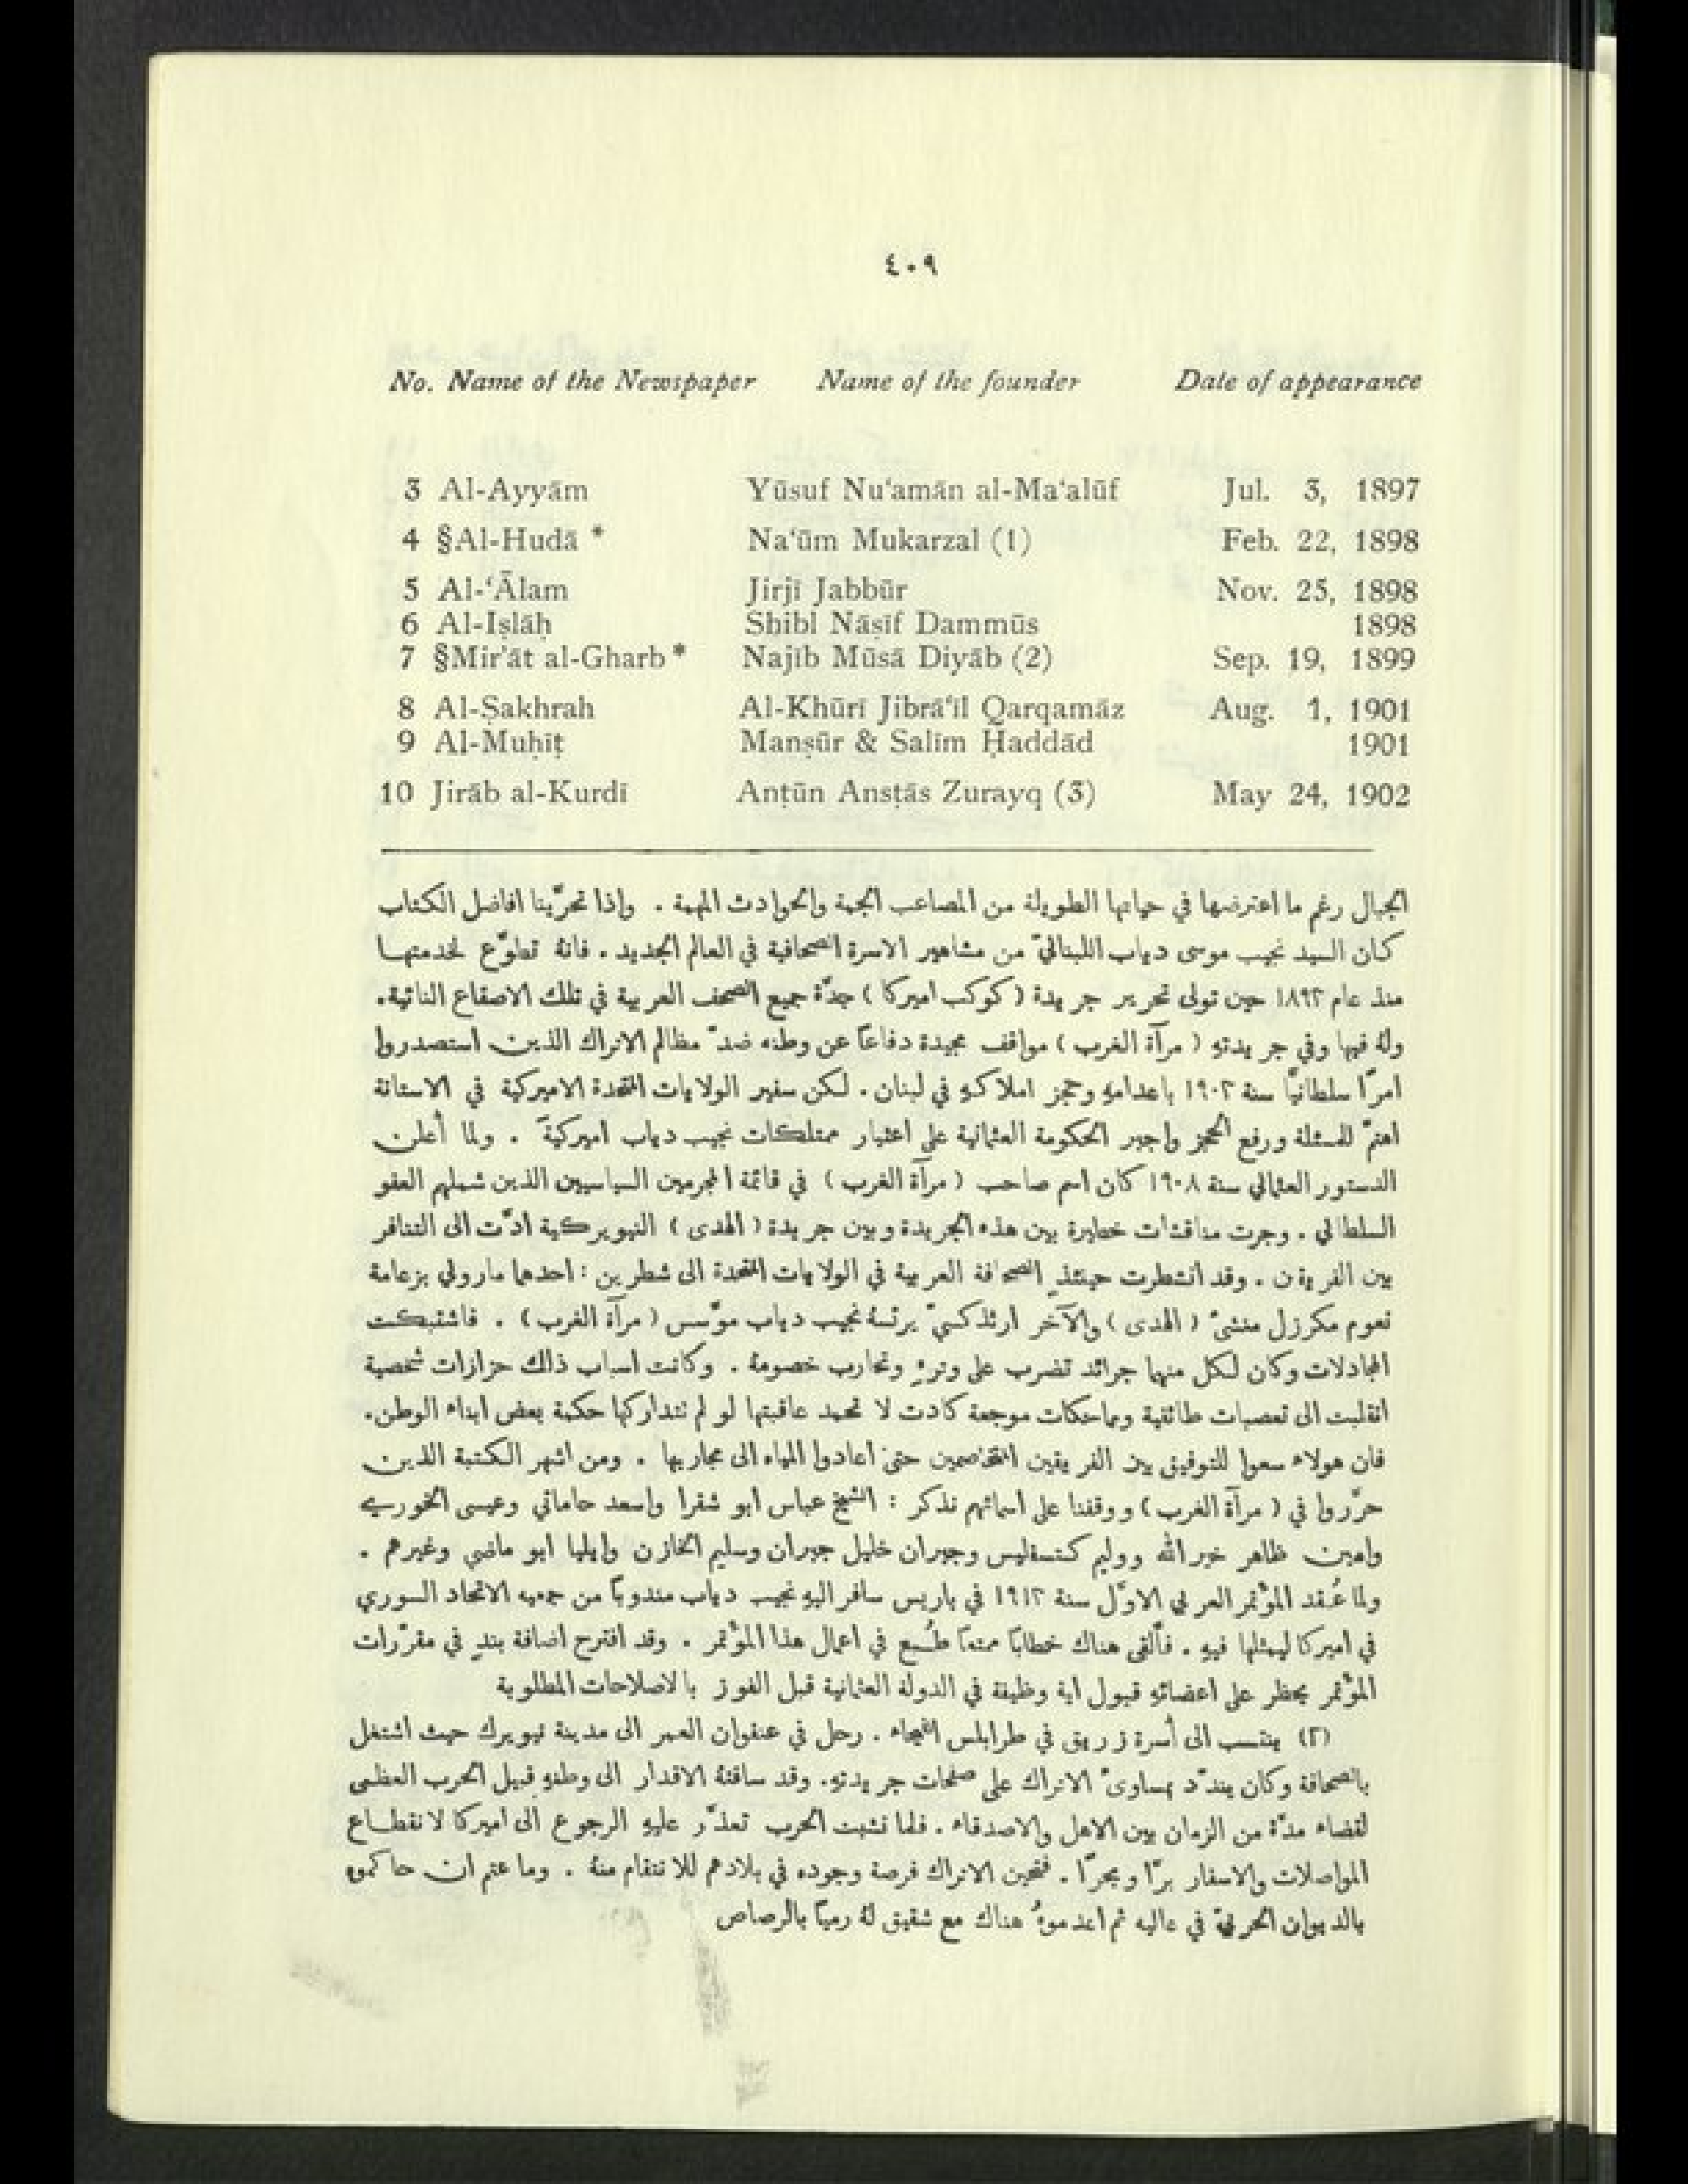 ٤٠٩
No. Name of the Newspaper Name of the founder Date of appearance
3 Al-Ayyām Yūsuf Nu‘amān al-Ma‘alūf Jul. 3, 1897
4 §Al-Hudā * Na‘ūm Mukarzal (1) Feb. 22, 1898
5 Al-‘Ālam Jirjī Jabbūr Nov. 25, 1898
6 Al-Iṣlāḥ Shibl Nāṣīf Dammūs 1898
7 §Mir’āt al-Gharb * Najīb Mūsā Diyāb (2) Sep. 19, 1899
8 Al-Ṣakhrah Al-Khūrī Jibrā‘īl Qarqamāz Aug. 1, 1901
9 Al-Muḥīṭ Manṣūr & Salīm Ḥaddād 1901
10 Jirāb al-Kurdī Anṭūn Ansṭās Zurayq (3) May 24, 1902
الجبال رغم ما اعترضها في حياتها الطويلة من المصاعب الجمة والحوادث المهمة . واذا تحرّينا افاضل الكتاب
كان السيد نجيب موسى دياب اللبنانيّ من مشاهير الاسرة الصحافية في العالم الجديد . فانهُ تطوّع لخدمتهــا
منذ عام ١٨٩٢ حين تولى تحرير جريدة ( كوكب اميركا ) جدّة جميع الصحف العربية في تلك الاصقاع النائية.
ولهُ فيها وفي جريدتهِ ( مرآة الغرب ) مواقف مجيدة دفاعًا عن وطنه ضدّ مظالم الاتراك الذين استصدروا
امرًا سلطانيًّا سنة ١٩٠٢ باعدامهِ وحجز املاكهِ في لبنان . لكن سفير الولايات المتحدة الاميركية في الاستانة
اهتمّ للمسئلة ورفع الحجز واجبر الحكومة العثمانية على اعتبار ممتلكات نجيب دياب اميركيةً . ولما أُعلن
الدستور العثماني سنة ١٩٠٨ كان اسم صاحب ( مرآة الغرب ) في قائمة المجرمين السياسيين الذين شملهم العفو
السلطاني . وجرت مناقشات خطيرة بين هذه الجريدة وبين جريدة ( الهدى ) النيويركية ادّت الى التنافر
بين الفريقين . وقد انشطرت حينئذٍ الصحافة العربية في الولايات المتحدة الى شطرين : احدهما ماروني بزعامة
نعوم مكرزل منشئ ( الهدى ) والآخر ارثذكسيّ يرئسهُ نجيب دياب مؤسس ( مرآة الغرب ) . فاشتبكت
المجادلات وكان لكل منهما جرائد تضرب على وترهِ وتحارب خصومهُ . وكانت اسباب ذلك حزازات شخصية
انقلبت الى تعصبات طائفية ومماحكات موجعة كادت لا تحمد عاقبتها لو لم تتداركها حكمة بعض ابناء الوطن.
فان هولاء سعوا للتوفيق بين الفريقين المتخاصمين حتى اعادوا المياه الى مجاريها . ومن اشهر الكتبة الذين
حرّروا في ( مرآة الغرب ) ووقفنا على اسمائهم نذكر : الشيخ عباس ابو شقرا واسعد حاماتي وعيسى الخوري
وامين ظاهر خير الله ووليم كتسفليس وجبران خليل جبران وسليم الخازن وايليا ابو ماضي وغيرهم .
ولما عُقد المؤتمر العربي الاوّل سنة ١٩١٣ في باريس سافر اليهِ نجيب دياب مندوبًا من جمعية الاتحاد السوري
في اميركا ليمثلها فيهِ . فألقى هناك خطابًا ممتعًا طُبع في اعمال هذا المؤتمر . وقد اقترح اضافة بندٍ في مقرّرات
المؤتمر يحظر على اعضائهِ قبول اية وظيفة في الدولة العثمانية قبل الفوز بالاصلاحات المطلوبة
(٣) ينتسب الى أسرة زريق في طرابلس الفيحاء . رحل في عنفوان العمر الى مدينة نيويرك حيث اشتغل
بالصحافة وكان يندّد بمساوئ الاتراك على صفحات جريدتهِ. وقد ساقتهُ الاقدار الى وطنهِ قبيل الحرب العظمى
لقضاء مدّة من الزمان بين الاهل والاصدقاء . فلما نشبت الحرب تعذّر عليهِ الرجوع الى اميركا لانقطــاع
المواصلات والاسفار برًّا وبحرًا . فتحين الاتراك فرصة وجوده في بلادهم للانتقام منهُ . وما عتم ان حاكموه
بالديوان الحربيّ في عاليه ثم اعدموهُ هناك مع شقيق لهُ رميًا بالرصاص